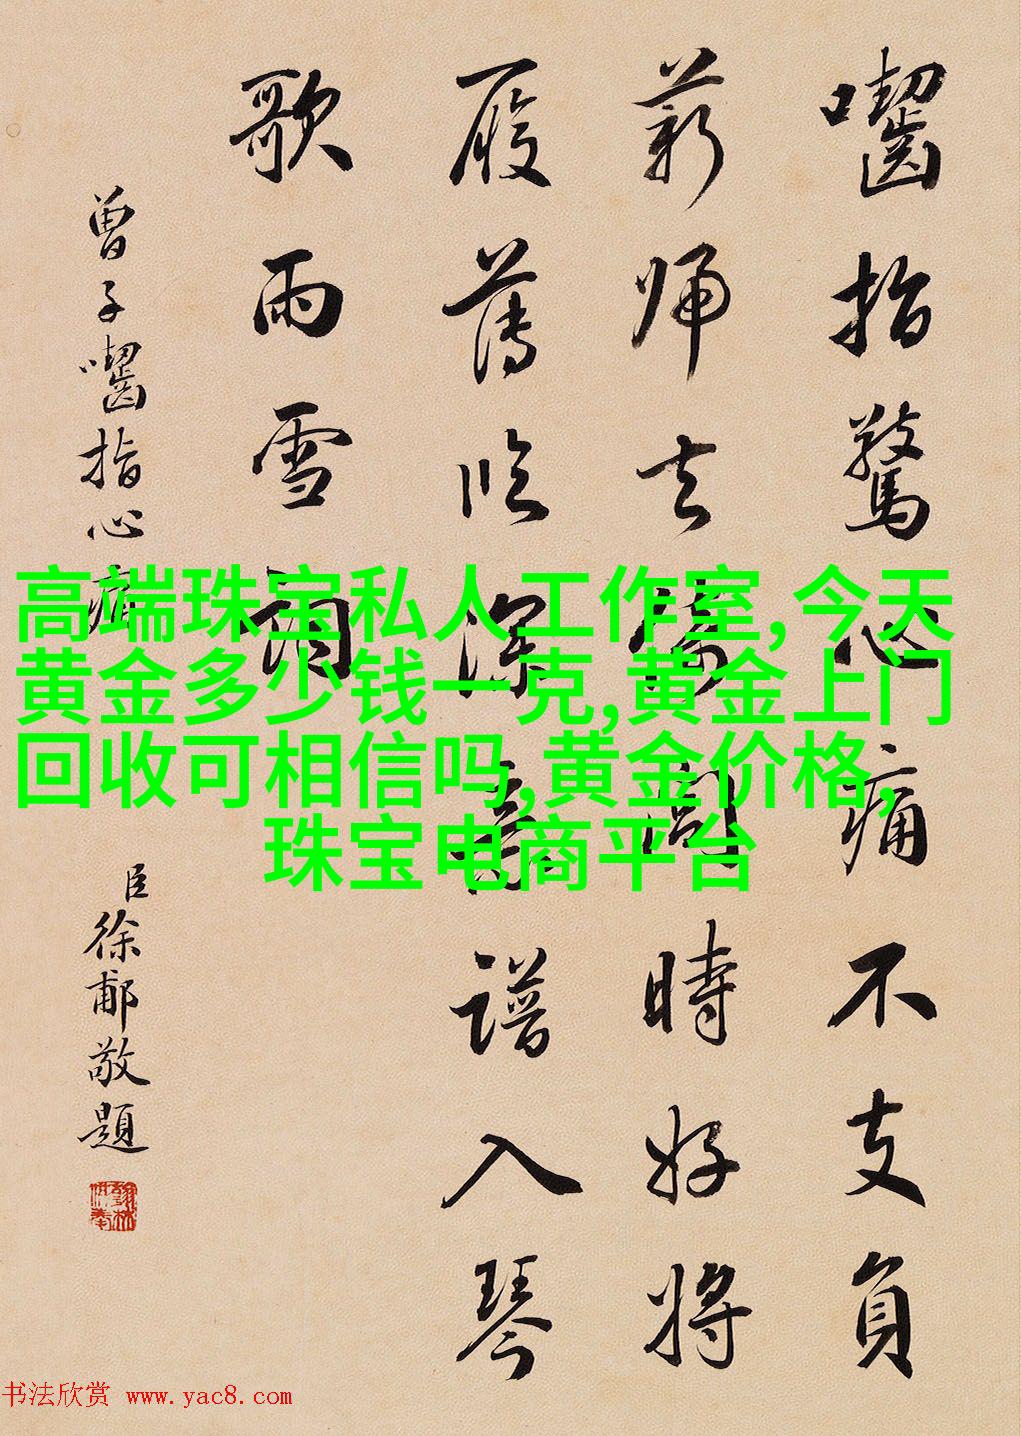 高端珠宝私人工作室,今天
黄金多少钱一克,黄金上门
回收可相信吗,黄金价格,
珠宝电商平台
囓指驚心痛不支負
薪帰去倚閭時好將
履薄臨深意譜入琴
歌雨雪
曾子囓指心痛
臣徐郙敬題
书法欣赏 www.yac8.com